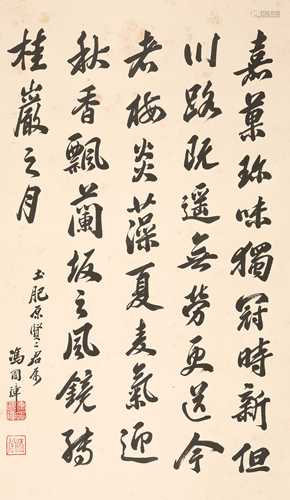 嘉菓珎味獨冠時新但
川路既遥無勞更送今
者梅炎藻夏麦氣迎
秋香飄蘭坂之風鏡轉
桂巖之月
土肥原賢二君属
馮閱謨